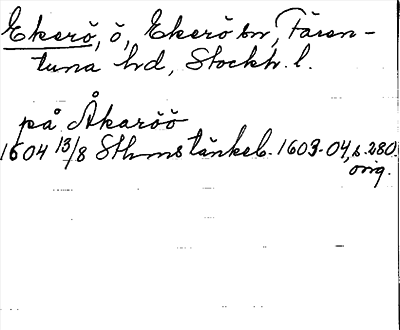 Ekerö, ö, Ekerö sn, Fären-
tuna hd, Stockh. l.
på Åkaröö
1604 13/8 Sthms tänkeb. 1603-04, s. 280.
orig.